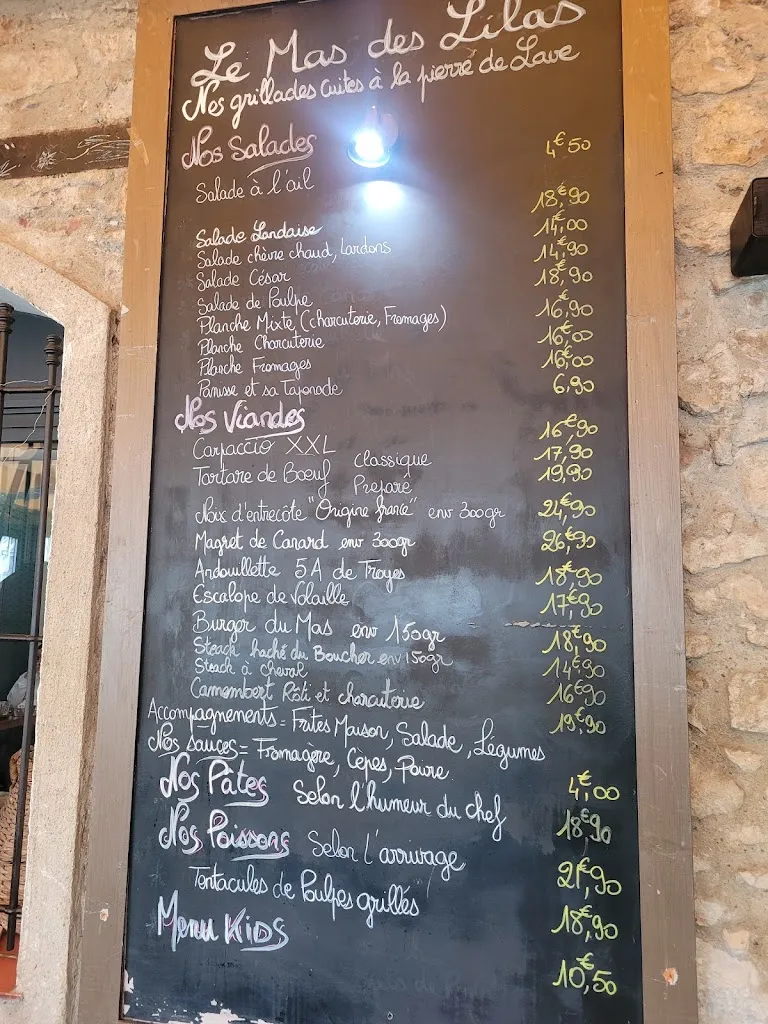 Le Mas des Lilas
Nos grillades cuites à la pierre de Lave
Nos Salades
Salade à l'ail 4€50
Salade Landaise 18€90
Salade chèvre chaud, Lardons 14€00
Salade César 14€90
Salade de Poulpe 18€90
Planche Mixte, (charcuterie, Fromages) 16€90
Planche Charcuterie 16€00
Planche Fromages 16€00
Panisse et sa Tapenade 6,90
Nos Viandes
Carpaccio XXL 16€90
Tartare de Boeuf classique 17,90
Preparé 19,90
Noix d'entrecôte "Origine france" env 300gr 24€90
Magret de Canard env 300gr 26€90
Andouillette 5A de Troyes 18€90
Escalope de Volaille 17€90
Burger du Mas env 150gr 18€90
Steack haché du Boucher env 150gr 14€90
Steack à cheval 16€90
Camembert Rôti et charcuterie 19€90
Accompagnements = Frites Maison, Salade, Légumes
Nos sauces = Fromagère, Cèpes, Poivre 4€00
Nos Pâtes Selon l'humeur du chef 18€90
Nos Poissons Selon l'arrivage 21€90
Tentacules de Poulpes grillés 18€90
Menu KiDS 10€50